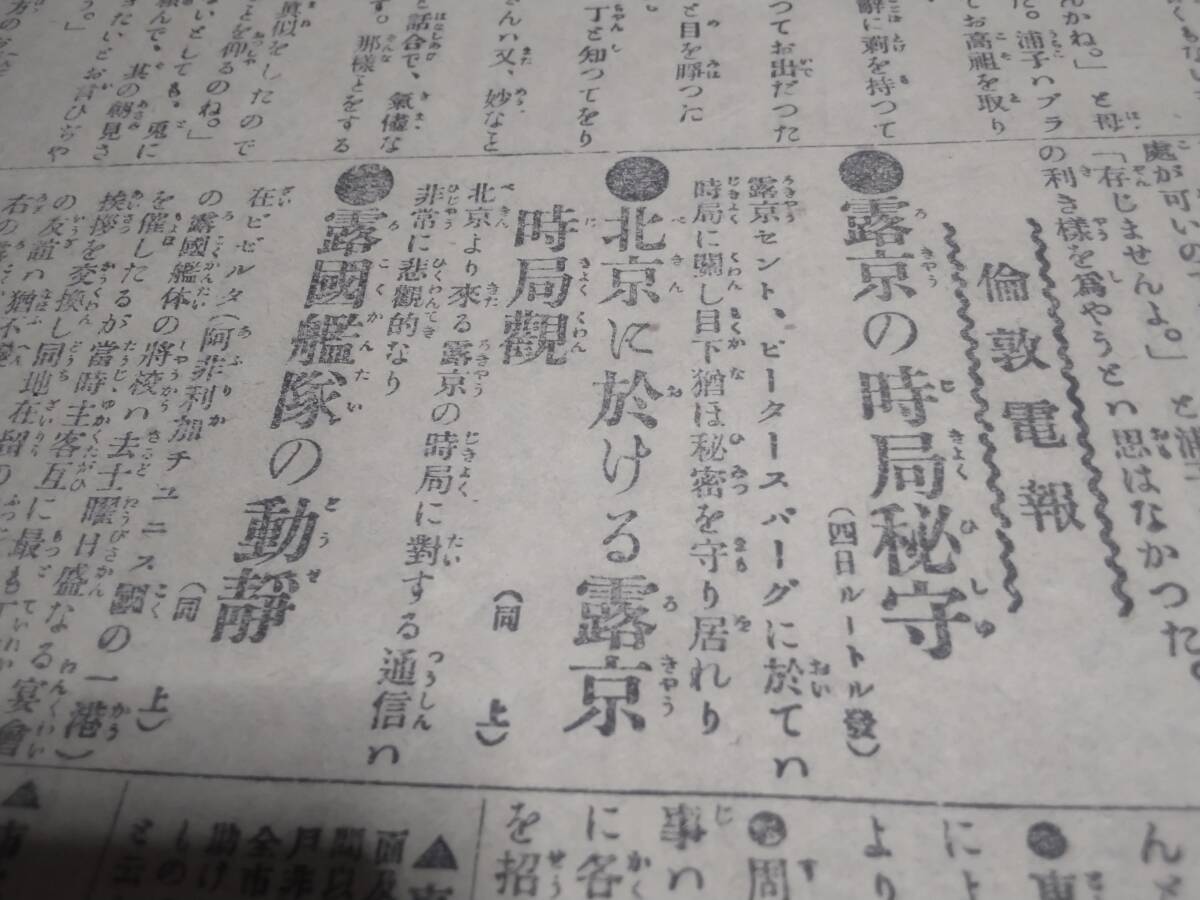 んかね。」と母
た。浦子ハブラ
てお高祖を取り
解に剃を持つて
つてお出だつた
と目を睜つた
丁と知つてをり
さんハ又、妙なと
と話合で、氣儘な
す。那樣とをする
眞似をしたので
とを仰るのね。」
ないとしても。兎に
頼んで、其の朝見さ
きたいとお言ひぢや
處が可いの
「存じませんよ。」と浦子
の利き樣を爲やうとハ思はなかつた。
倫敦電報
●露京の時局秘守
(四日ルートル發)
露京セント、ピータースバーグに於てハ
時局に關し目下猶ほ秘密を守り居れり
●北京に於ける露京
時局觀
(同上)
北京より來る露京の時局に對する通信ハ
非常に悲觀的なり
●露國艦隊の動靜
(同上)
在ビゼルタ(阿非利加チユニス國の一港)
の露國艦体の將校ハ去土曜日盛なる宴會
を催したるが當時主客互に最も丁
挨拶を変換し同地在留の
の友誼ハ猶不變
右の
んと
●東
によ
より
●周
事ハ
に各
を招
▲
面及
間以
月非
全市
助け
しの
と云
▲市